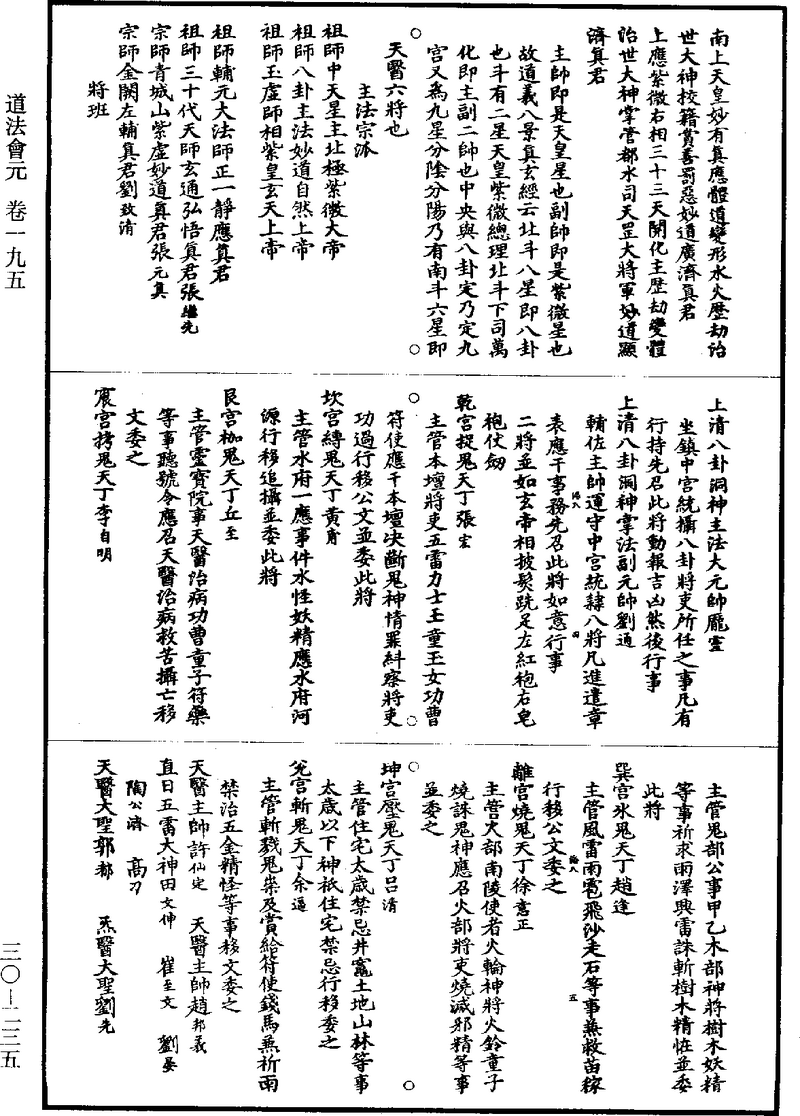 道法會元 卷一九五
三〇—二三五
南上天皇妙有真應體道變形水火歷劫治
世大神校籍賞善罰惡妙道廣濟真君
上應紫微右相三十三天開化主歷劫變體
治世大神掌管都水司天罡大將軍妙道顯
濟真君
主帥即是天皇星也副帥即是紫微星也
故道義八景真玄經云北斗八星即八卦
也斗有二星天皇紫微總理北斗下司萬
化即主副二帥也中央與八卦定乃定九
宮又為九星分陰分陽乃有南斗六星即
天醫六將也
主法宗派
祖師中天星主北極紫微大帝
祖師八卦主法妙道自然上帝
祖師玉虛師相紫皇玄天上帝
祖師輔元大法師正一靜應真君
祖師三十代天師玄通弘悟真君張繼先
宗師青城山紫虛妙道真君張元真
宗師金闕左輔真君劉致清
將班
上清八卦洞神主法大元帥龐靈
坐鎮中宮統攝八卦將吏所任之事凡有
行持先召此將動報吉凶然後行事
上清八卦洞神掌法副元帥劉通
輔佐主帥運守中宮統隸八將凡進遣章
表應干事務先召此將如意行事
二將並如玄帝相披髮跣足左紅袍右皂
袍仗劍
乾宮捉鬼天丁張宏
主管本壇將吏五雷力士玉童玉女功曹
符使應干本壇決斷鬼神情罪糾察將吏
功過行移公文並委此將
坎宮縛鬼天丁黃胄
主管水府一應事件水怪妖精應水府河
源行移追攝並委此將
艮宮枷鬼天丁丘至
主管靈寶院事天醫治病功曹童子符藥
等事聽號令應召天醫治病救苦攝亡移
文委之
震宮拷鬼天丁李自明
主管鬼部公事甲乙木部神將樹木妖精
等事祈求雨澤興雷誅斬樹木精怪並委
此將
巽宮氷鬼天丁趙逵
主管風雷雨雹飛沙走石等事兼救苗稼
行移公文委之
離宮燒鬼天丁徐言正
主管火部南陵使者火輪神將火鈴童子
燒誅鬼神應召火部將吏燒滅邪精等事
並委之
坤宮壓鬼天丁呂清
主管住宅太歲禁忌井竈土地山林等事
太歲以下神祇住宅禁忌行移委之
兌宮斬鬼天丁余遥
主管斬戮鬼祟及賞給符使錢馬兼祈雨
禁治五金精怪等事移文委之
天醫主帥許仙定 天醫主帥趙邦義
直日五雷大神田文仲 崔至文 劉晏
陶公濟 高刃
天醫大聖郭都 炁醫大聖劉先